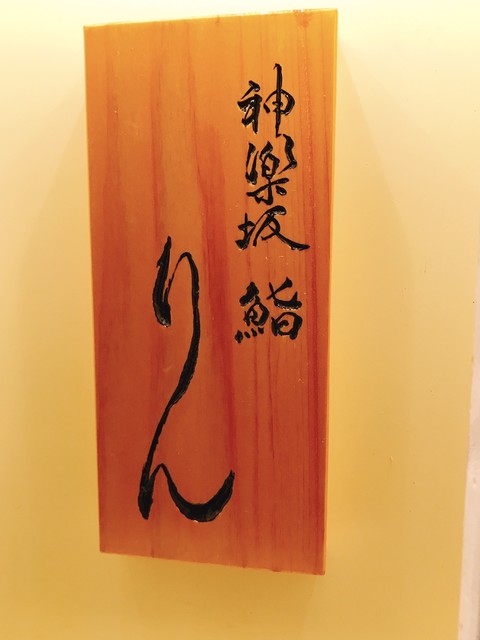 神楽坂 鮨
りん